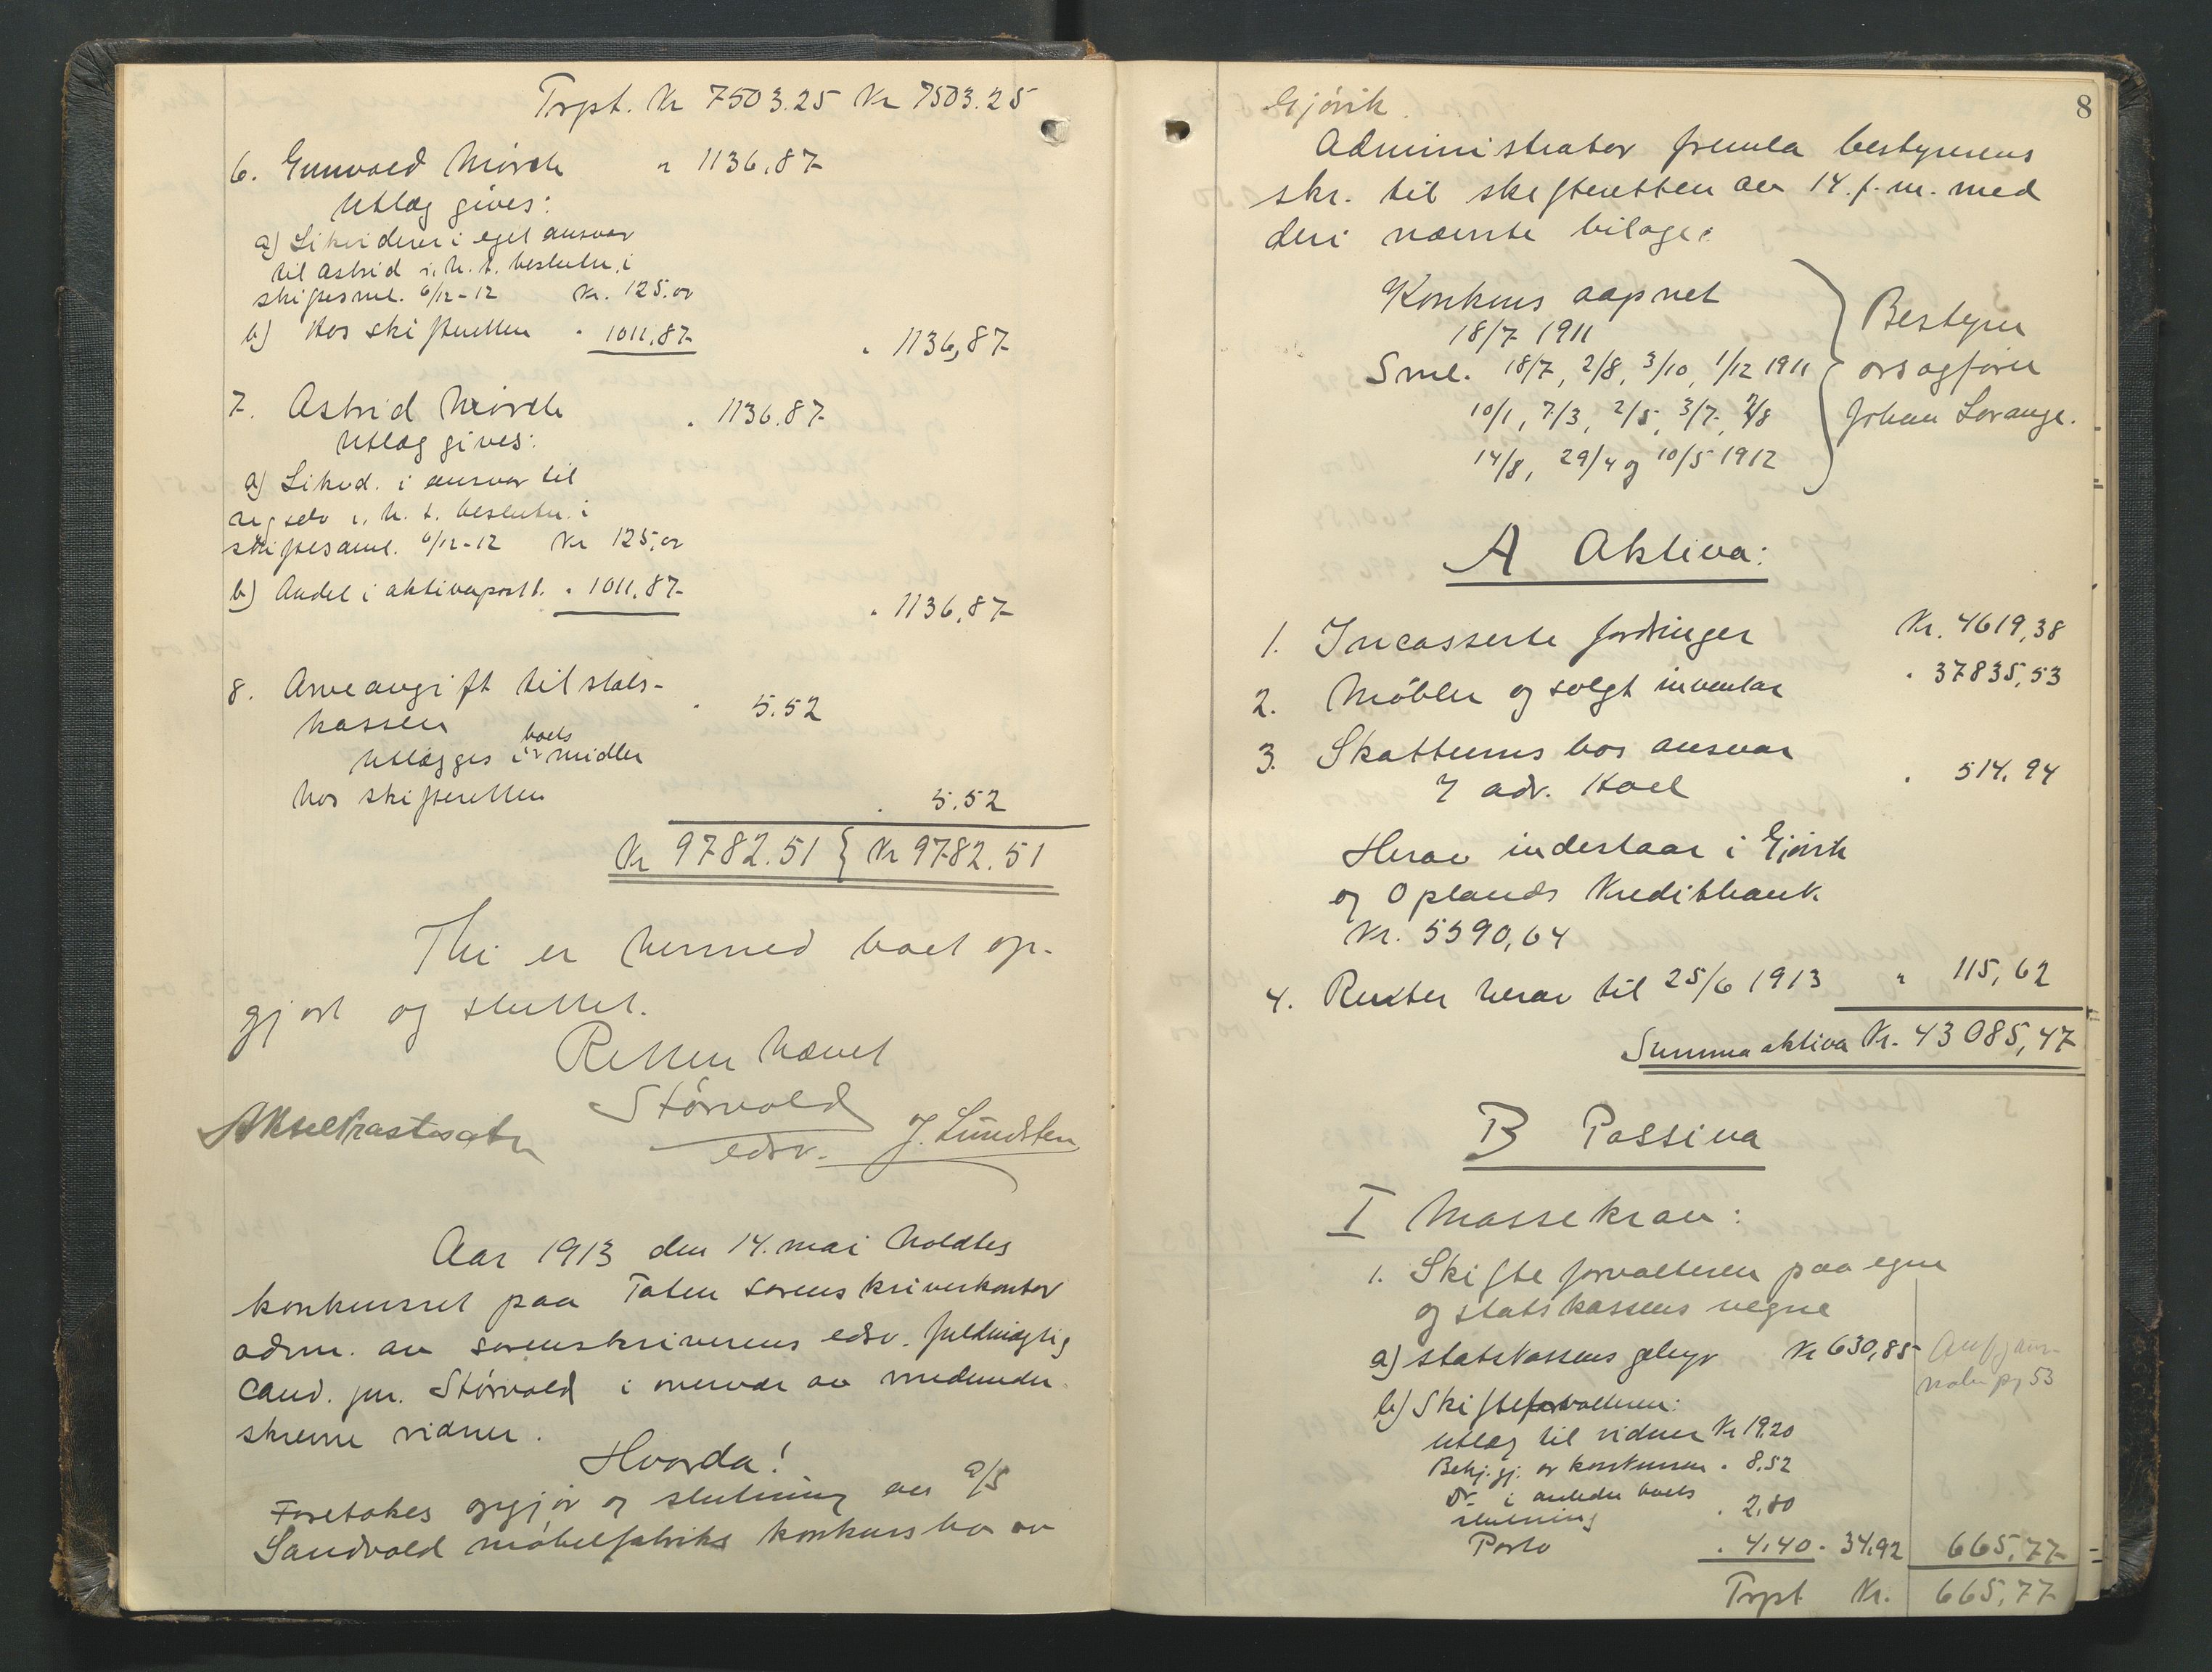 Trpt. Kr 7503.25 Kr 7503.25
6. Gunvald Mørch " 1136,87
Utlæg gives:
a) Likviderer i eget ansvar
til Astrid i. h. t. beslutn. i
skiftesml. 6/12-12 Kr. 125,00
b) Hos skifteretten " 1011,87 " 1136,87
7. Astrid Mørch " 1136.87
Utlæg gives:
a) Likvid. i ansvar til
sig selv i. h. t. beslutn. i
skiftesaml. 6/12-12 Kr 125,00
b) Andel i aktivapost 1. " 1011,87 " 1136,87
8. Arveavgift til stats-
kassen " 5.52
utlægges i boets midler
hos skifteretten " 5.52
Kr 9782.51 } Kr 9782.51
Thi er hermed boet op-
gjort og sluttet.
Retten hævet
Størvold
edsv. J. Lundsten
Aar 1913 den 14. mai holdtes
konkursret paa Toten sorenskriverkontor
adm. av sorenskriverens edsv. fuldmægtig
cand. jur. Størvold i overvær av medunder-
skrevne vidner.
Hvorda!
Foretokes opgjør og slutning av 9/5
Sandvold møbelfabriks konkursbo av
8
Gjøvik.
Administrator fremla bestyrerens
skr. til skifteretten av 14. f. m. med
deri nævnte bilage:
Konkurs aapnet
18/7 1911
Sml. 18/7, 2/8, 3/10, 1/12 1911
10/1, 7/3, 2/5, 3/7, 7/8
14/8, 29/4 og 10/5 1912
Bestyrer
orsagfører
Johan Lorange.
A Aktiva:
1. Incasserte fordringer Kr. 4619,38
2. Møbler og solgt inventar " 37835,53
3. Skatterums bos ansvar
adv. Hoel " 514.94
Herav indestaar i Gjøvik
og Oplands Kreditbank
Kr. 5590,64
4. Renter herav til 25/6 1913 " 115,62
Summa aktiva Kr. 43085,47
B Passiva
I Massekrav:
1. Skifteforvalteren paa egne
og statskassens vegne
a) statskassens gebyr Kr 630,85
b) Skifteforvalteren:
Utlæg til vidner Kr 19.20
Bekj.gj. av konkursen " 8.52
Do i anledn boets
slutning " 2,80
Porto " 4,40 " 34,92 665,77
Trpt Kr. 665,77